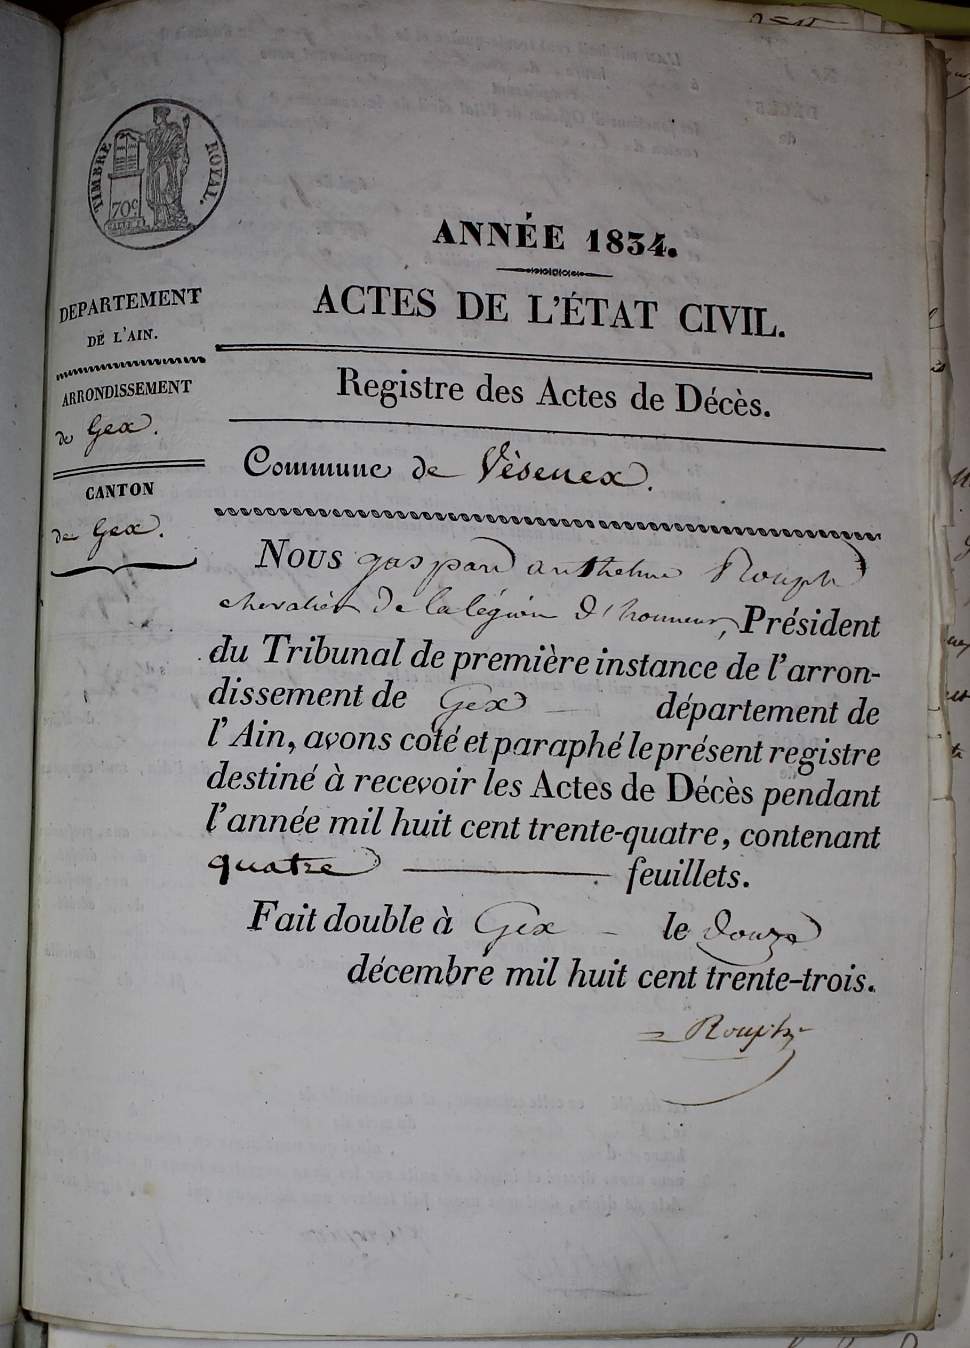 TIMBRE ROYAL.
70c
ANNÉE 1834.
ACTES DE L'ÉTAT CIVIL.
DEPARTEMENT
DE L'AIN.
ARRONDISSEMENT
de Gex.
CANTON
de Gex.
Registre des Actes de Décès.
Commune de Vèsenex.
Nous gaspard anthelme Rouph
chevalier de la légion d'honneur, Président
du Tribunal de première instance de l'arron-
dissement de Gex département de
l'Ain, avons coté et paraphé le présent registre
destiné à recevoir les Actes de Décès pendant
l'année mil huit cent trente-quatre, contenant
quatre feuillets.
Fait double à Gex le douze
décembre mil huit cent trente-trois.
Rouph